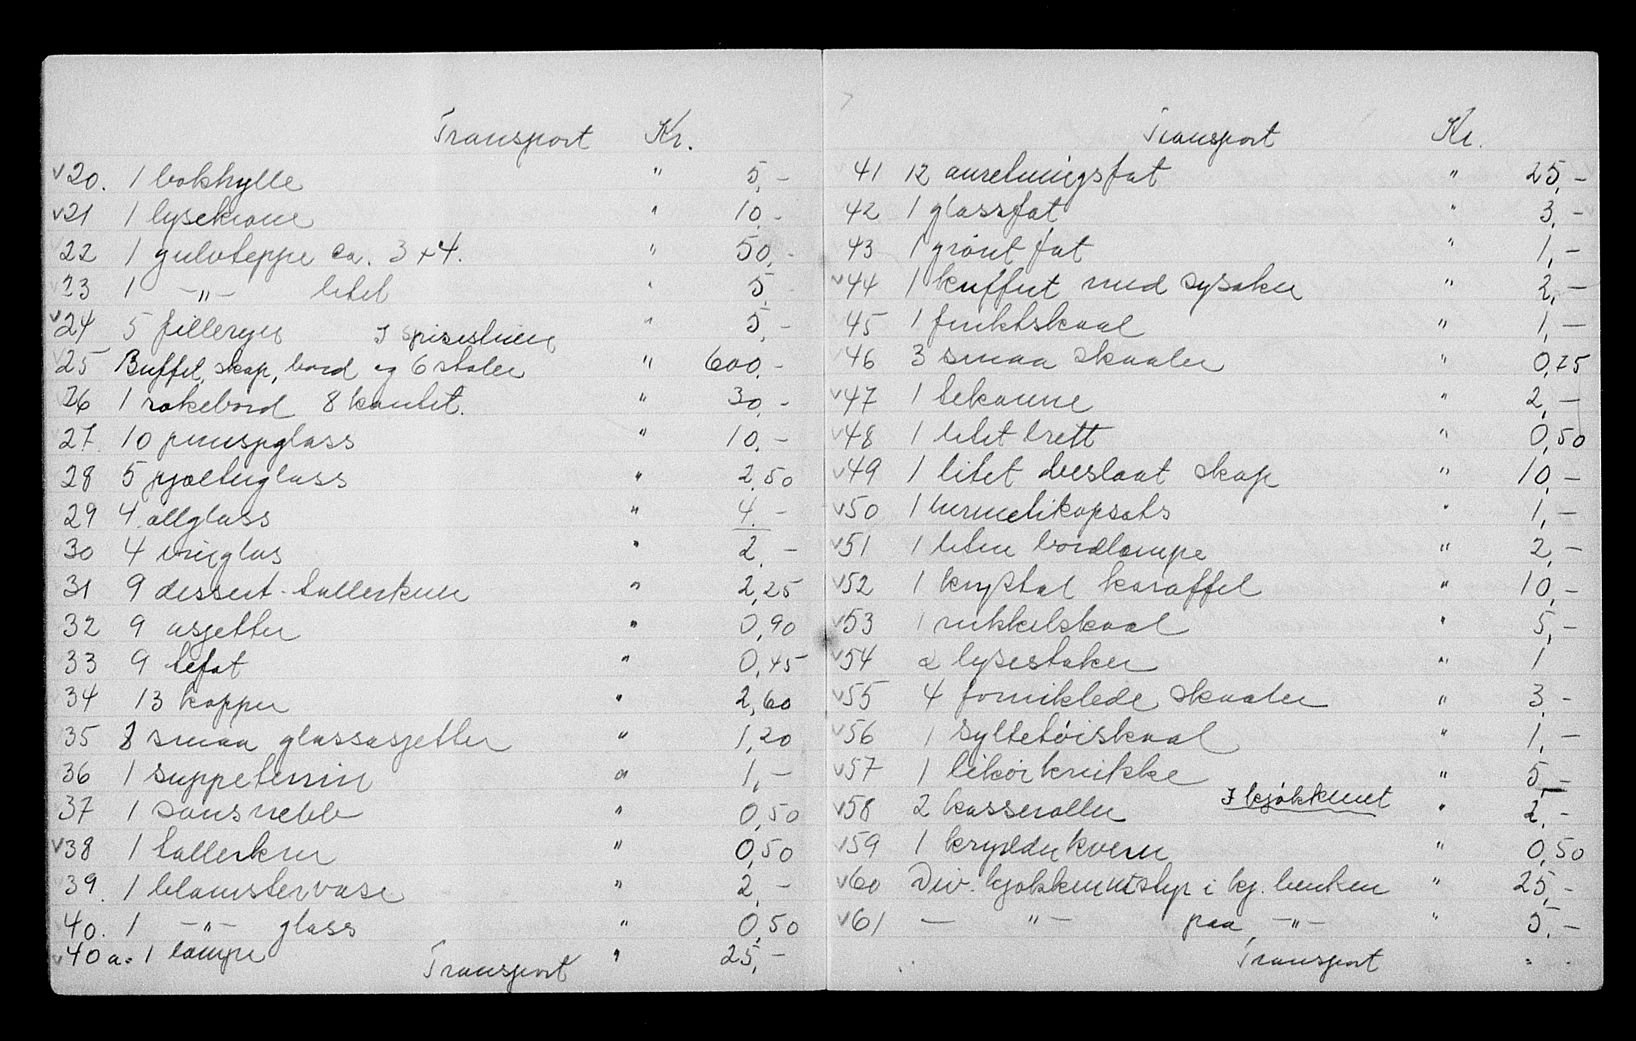 Transport Kr.
v20. 1 bokhylle " 5,-
v21 1 lysekrone " 10,-
22 1 gulvteppe ca. 3 x 4. " 50,-
23 1 -"- litet " 5,-
v24 5 filleryer " 5,-
I spisestuen
25 Buffet, skap, bord og 6 stoler " 600,-
26 1 røkebord 8 kantet. " 30,-
27. 10 punsjglass " 10,-
28 5 pjolterglass " 2,50
29 4 ølglass " 4,-
30 4 vinglas " 2,-
31 9 dessert-tallerkner " 2,25
32 9 asjetter " 0,90
33 9 tefat " 0,45
34 13 kopper " 2,60
35 8 smaa glassasjetter " 1,20
36 1 suppeterrin " 1,-
37 1 sausnebb " 0,50
v38 1 tallerken " 0,50
39. 1 blomstervase " 2,-
40. 1 -"- glass " 0,50
v40 a. 1 lampe " 25,-
Transport
Transport Kr.
41 12 anretningsfat " 25,-
42 1 glassfat " 3,-
43 1 grønt fat " 1,-
v44 1 kuffert med sysaker " 2,-
45 1 fruktskaal " 1,-
46 3 smaa skaaler " 0,75
v47 1 tekanne " 2,-
v48 1 litet brett " 0,50
v49 1 litet skap " 10,-
v50 1 " 1,-
v51 1 liten bordlampe " 2,-
v52 1 krystal karaffel " 10,-
v53 1 nikkelskaal " 5,-
v54 2 lysestaker " 1
v55 4 forniklede skaaler " 3,-
v56 1 syltetøiskaal " 1,-
v57 1 likørkrukke " 5,-
I kjøkkenet
v58 2 kasseroller " 2,-
v59 1 krydderkvern " 0,50
v60 Div. kjøkkenutstyr i kj. benken " 25,-
v61 - "- paa -"- " 5,-
Transport "